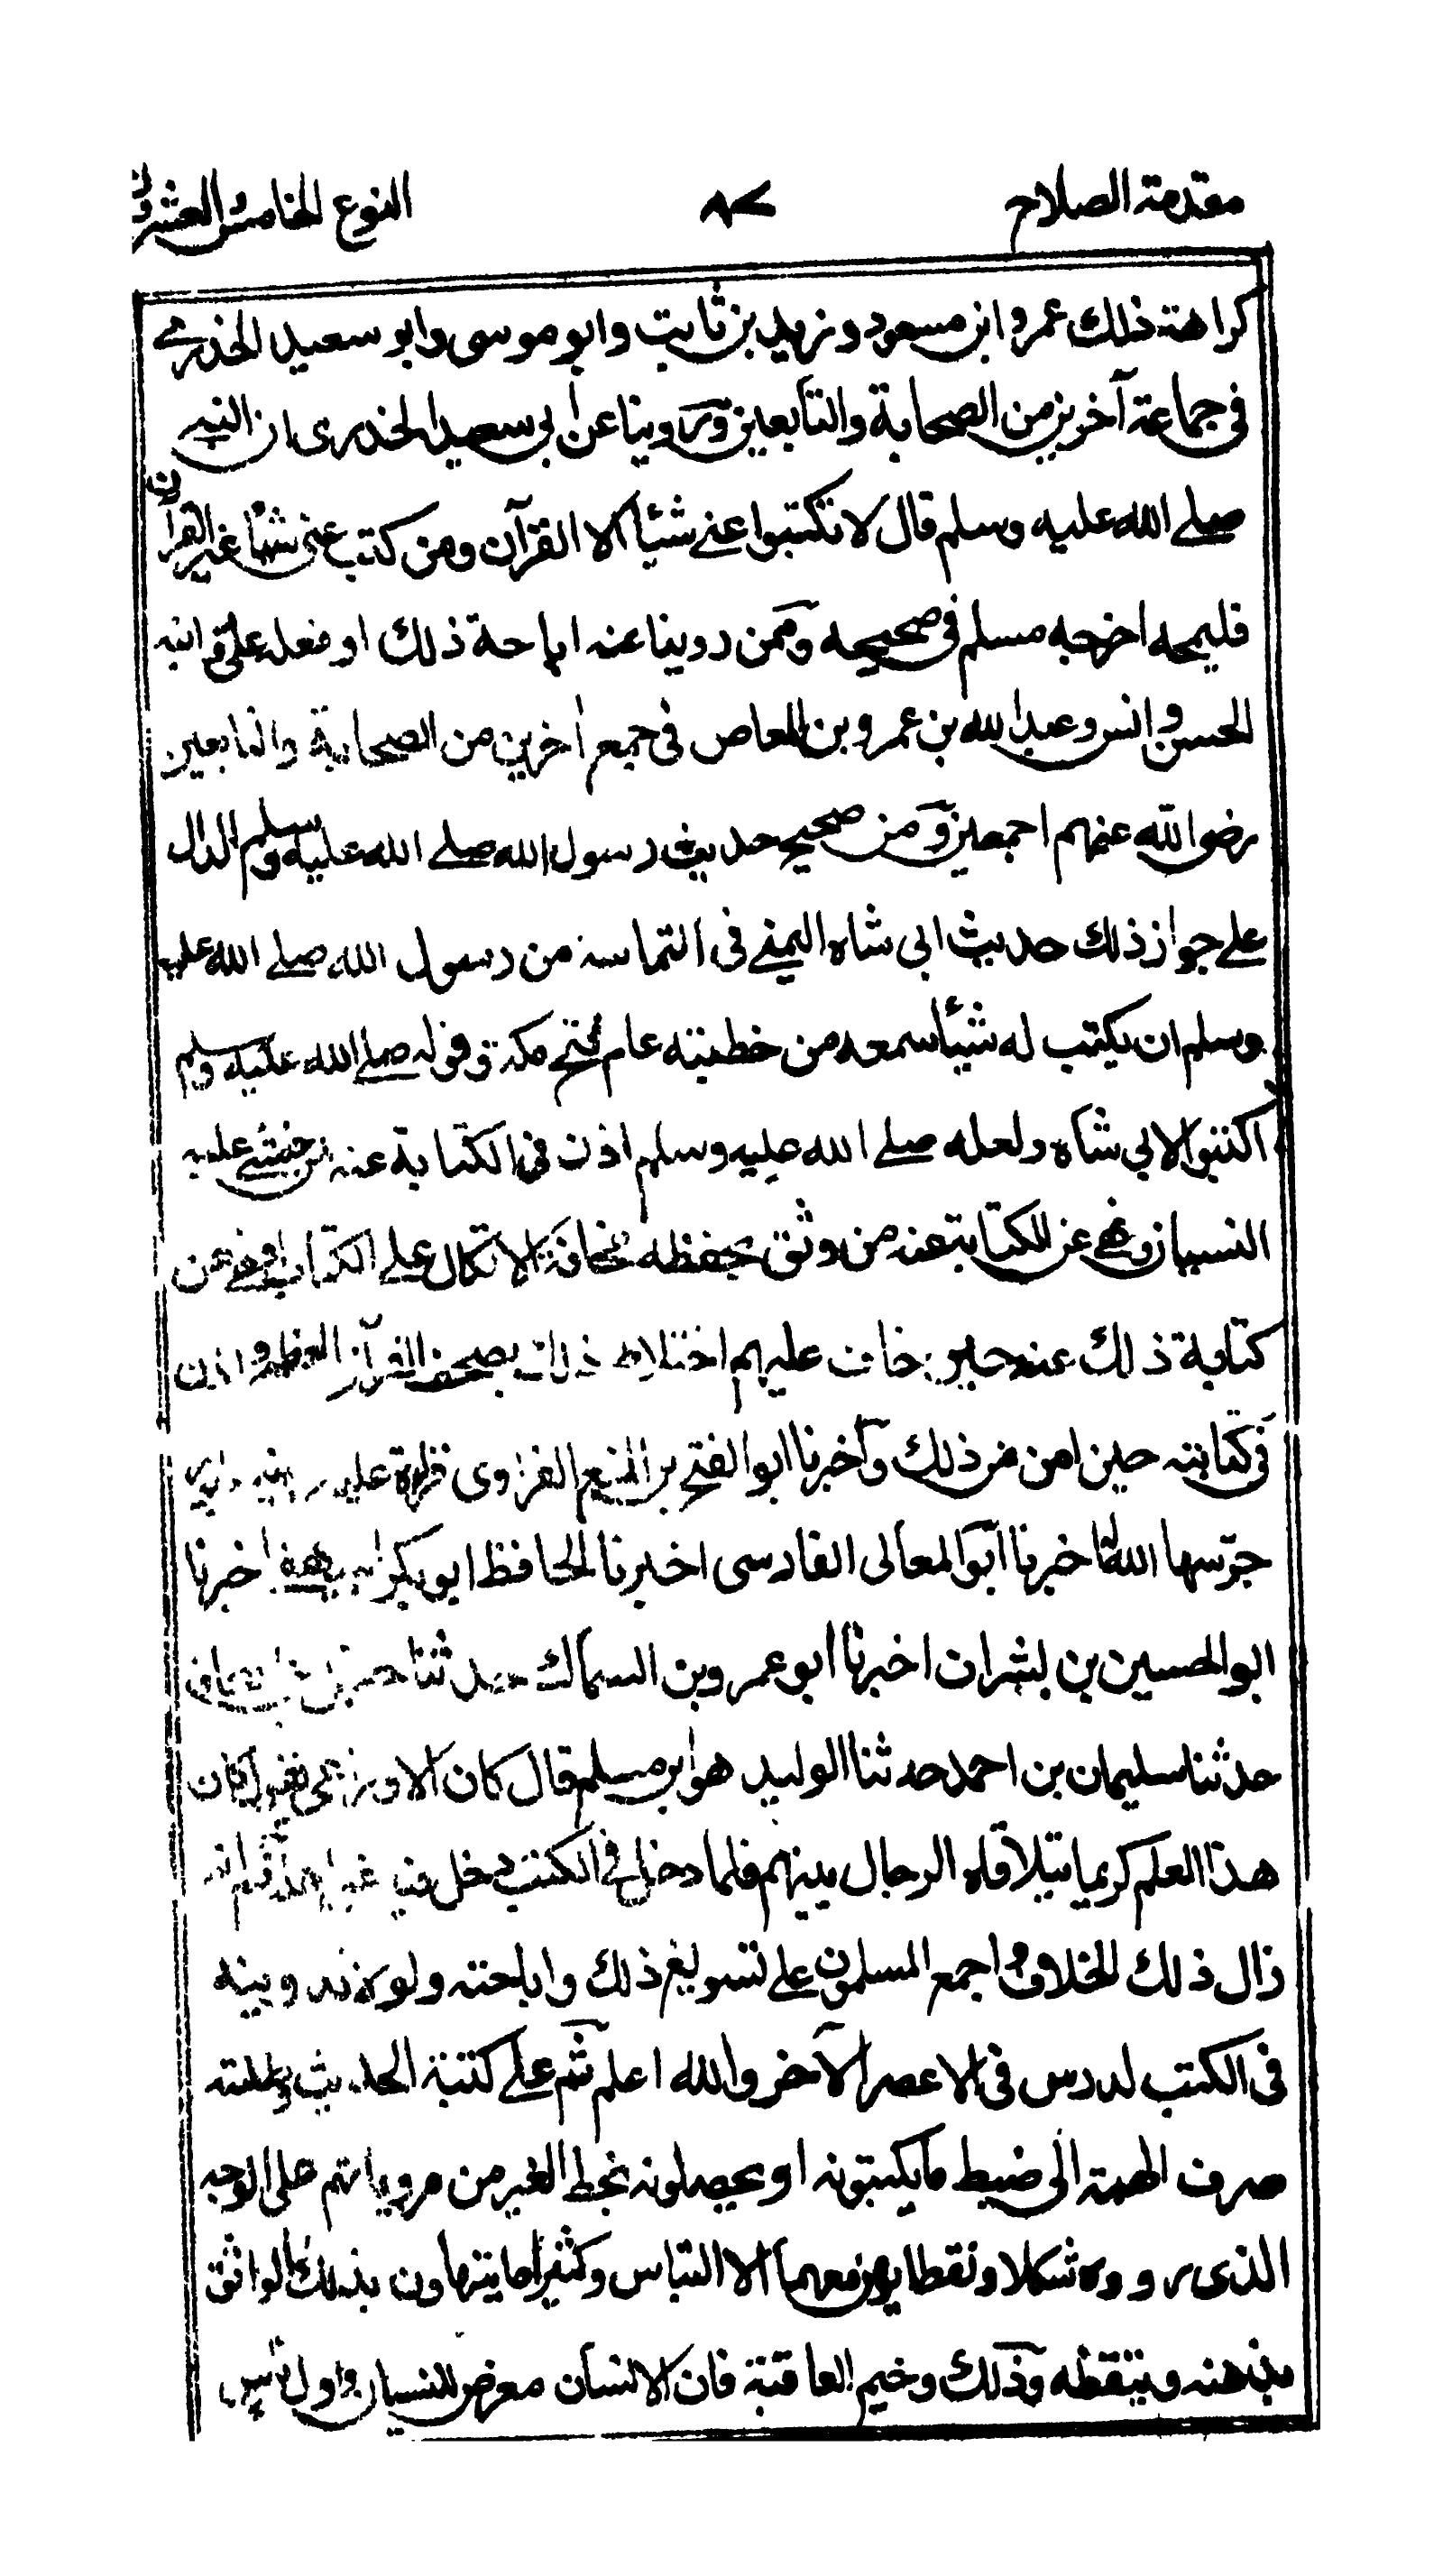 مقدمة الصلاح ٨٧ النوع الخامس والعشرون
كراهة ذلك عمر وابن مسعود وزيد بن ثابت وابو موسى وابو سعيد الخدري
في جماعة آخرين من الصحابة والتابعين وروينا عن ابي سعيد الخدرى ان النبي
صلے الله عليه وسلم قال لا تكتبوا عنے شيئا الا القرآن ومن كتب عنى شيئا غير القرآن
فليمحه اخرجه مسلم في صحيحه وممن روينا عنه اباحة ذلك او فعله على وابنه
الحسن وانس وعبد الله بن عمرو بن العاص فى جمع اخرين من الصحابة والتابعين
رضى الله عنهم اجمعين ومن صحيح حديث رسول الله صلے الله عليه وسلم الدال
علے جواز ذلك حديث ابى شاه اليمنے فى التماسه من رسول الله صلے الله عليه
وسلم ان يكتب له شيئا سمعه من خطبته عام فتح مكة وقوله صلے الله عليه وسلم
اكتبوا لابي شاه ولعله صلے الله عليه وسلم اذن في الكتابة عنه لمن خشے عليه
النسيان ونهے عن الكتابة عنه من وثق بحفظه مخافة الاتكال علے الكتاب او نهے عن
كتابة ذلك عنه حين خاف عليهم اختلاط ذلك بصحف القرآن العظيم واذن
في كتابته حين امن من ذلك وآخبرنا ابو الفتح بن المنعم الفراوى قراءة عليه
حرسها الله اخبرنا ابو المعالى الفارسى اخبرنا الحافظ ابو بكر البيهقے اخبرنا
ابو الحسين بن بشران اخبرنا ابو عمرو بن السماك حدثنا حنبل بن اسحاق
حدثنا سليمان بن احمد حدثنا الوليد هو ابن مسلم قال كان الاوزاعى يقول كان
هذا العلم كريما يتلاقاه الرجال بينهم فلما دخل في الكتب دخل فيه غير اهله ثم انه
زال ذلك الخلاف واجمع المسلمون علے تسويغ ذلك واباحته ولولا تدوينه
فى الكتب لدرس فى الاعصر الآخر والله اعلم ثم علے كتبة الحديث وطلبته
صرف الهمة الى ضبط ما يكتبونه او يحصلونه بخط الغير من مروياتهم على الوجه
الذى رووه شكلا ونقطا يؤمن معهما الالتباس وكثيرا ما يتهاون بذلك الواثق
بذهنه وتيقظه وذلك وخيم العاقبة فان الانسان معرض للنسيان واول ناس